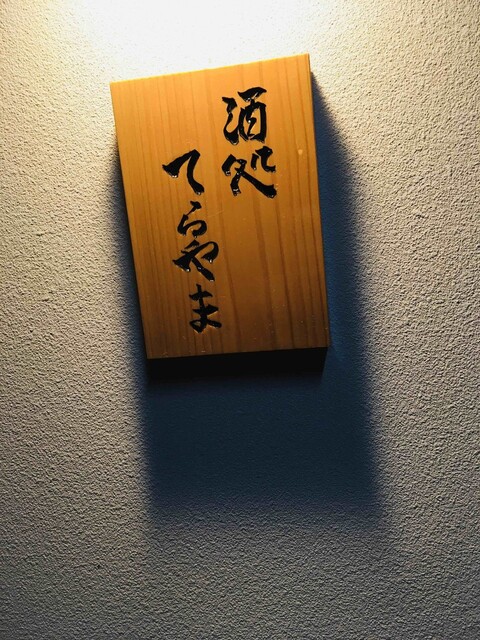 酒処
てらやま